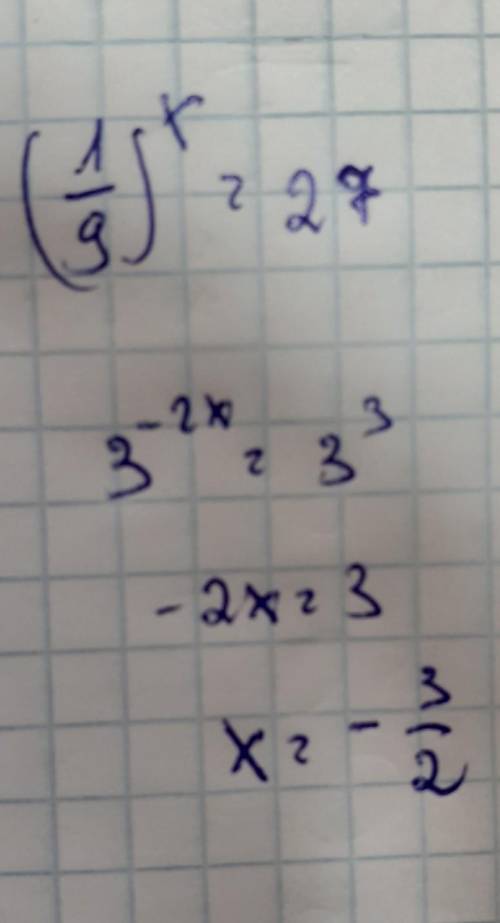 (1/9)^x = 27
3^-2x = 3^3
-2x = 3
x = - 3/2